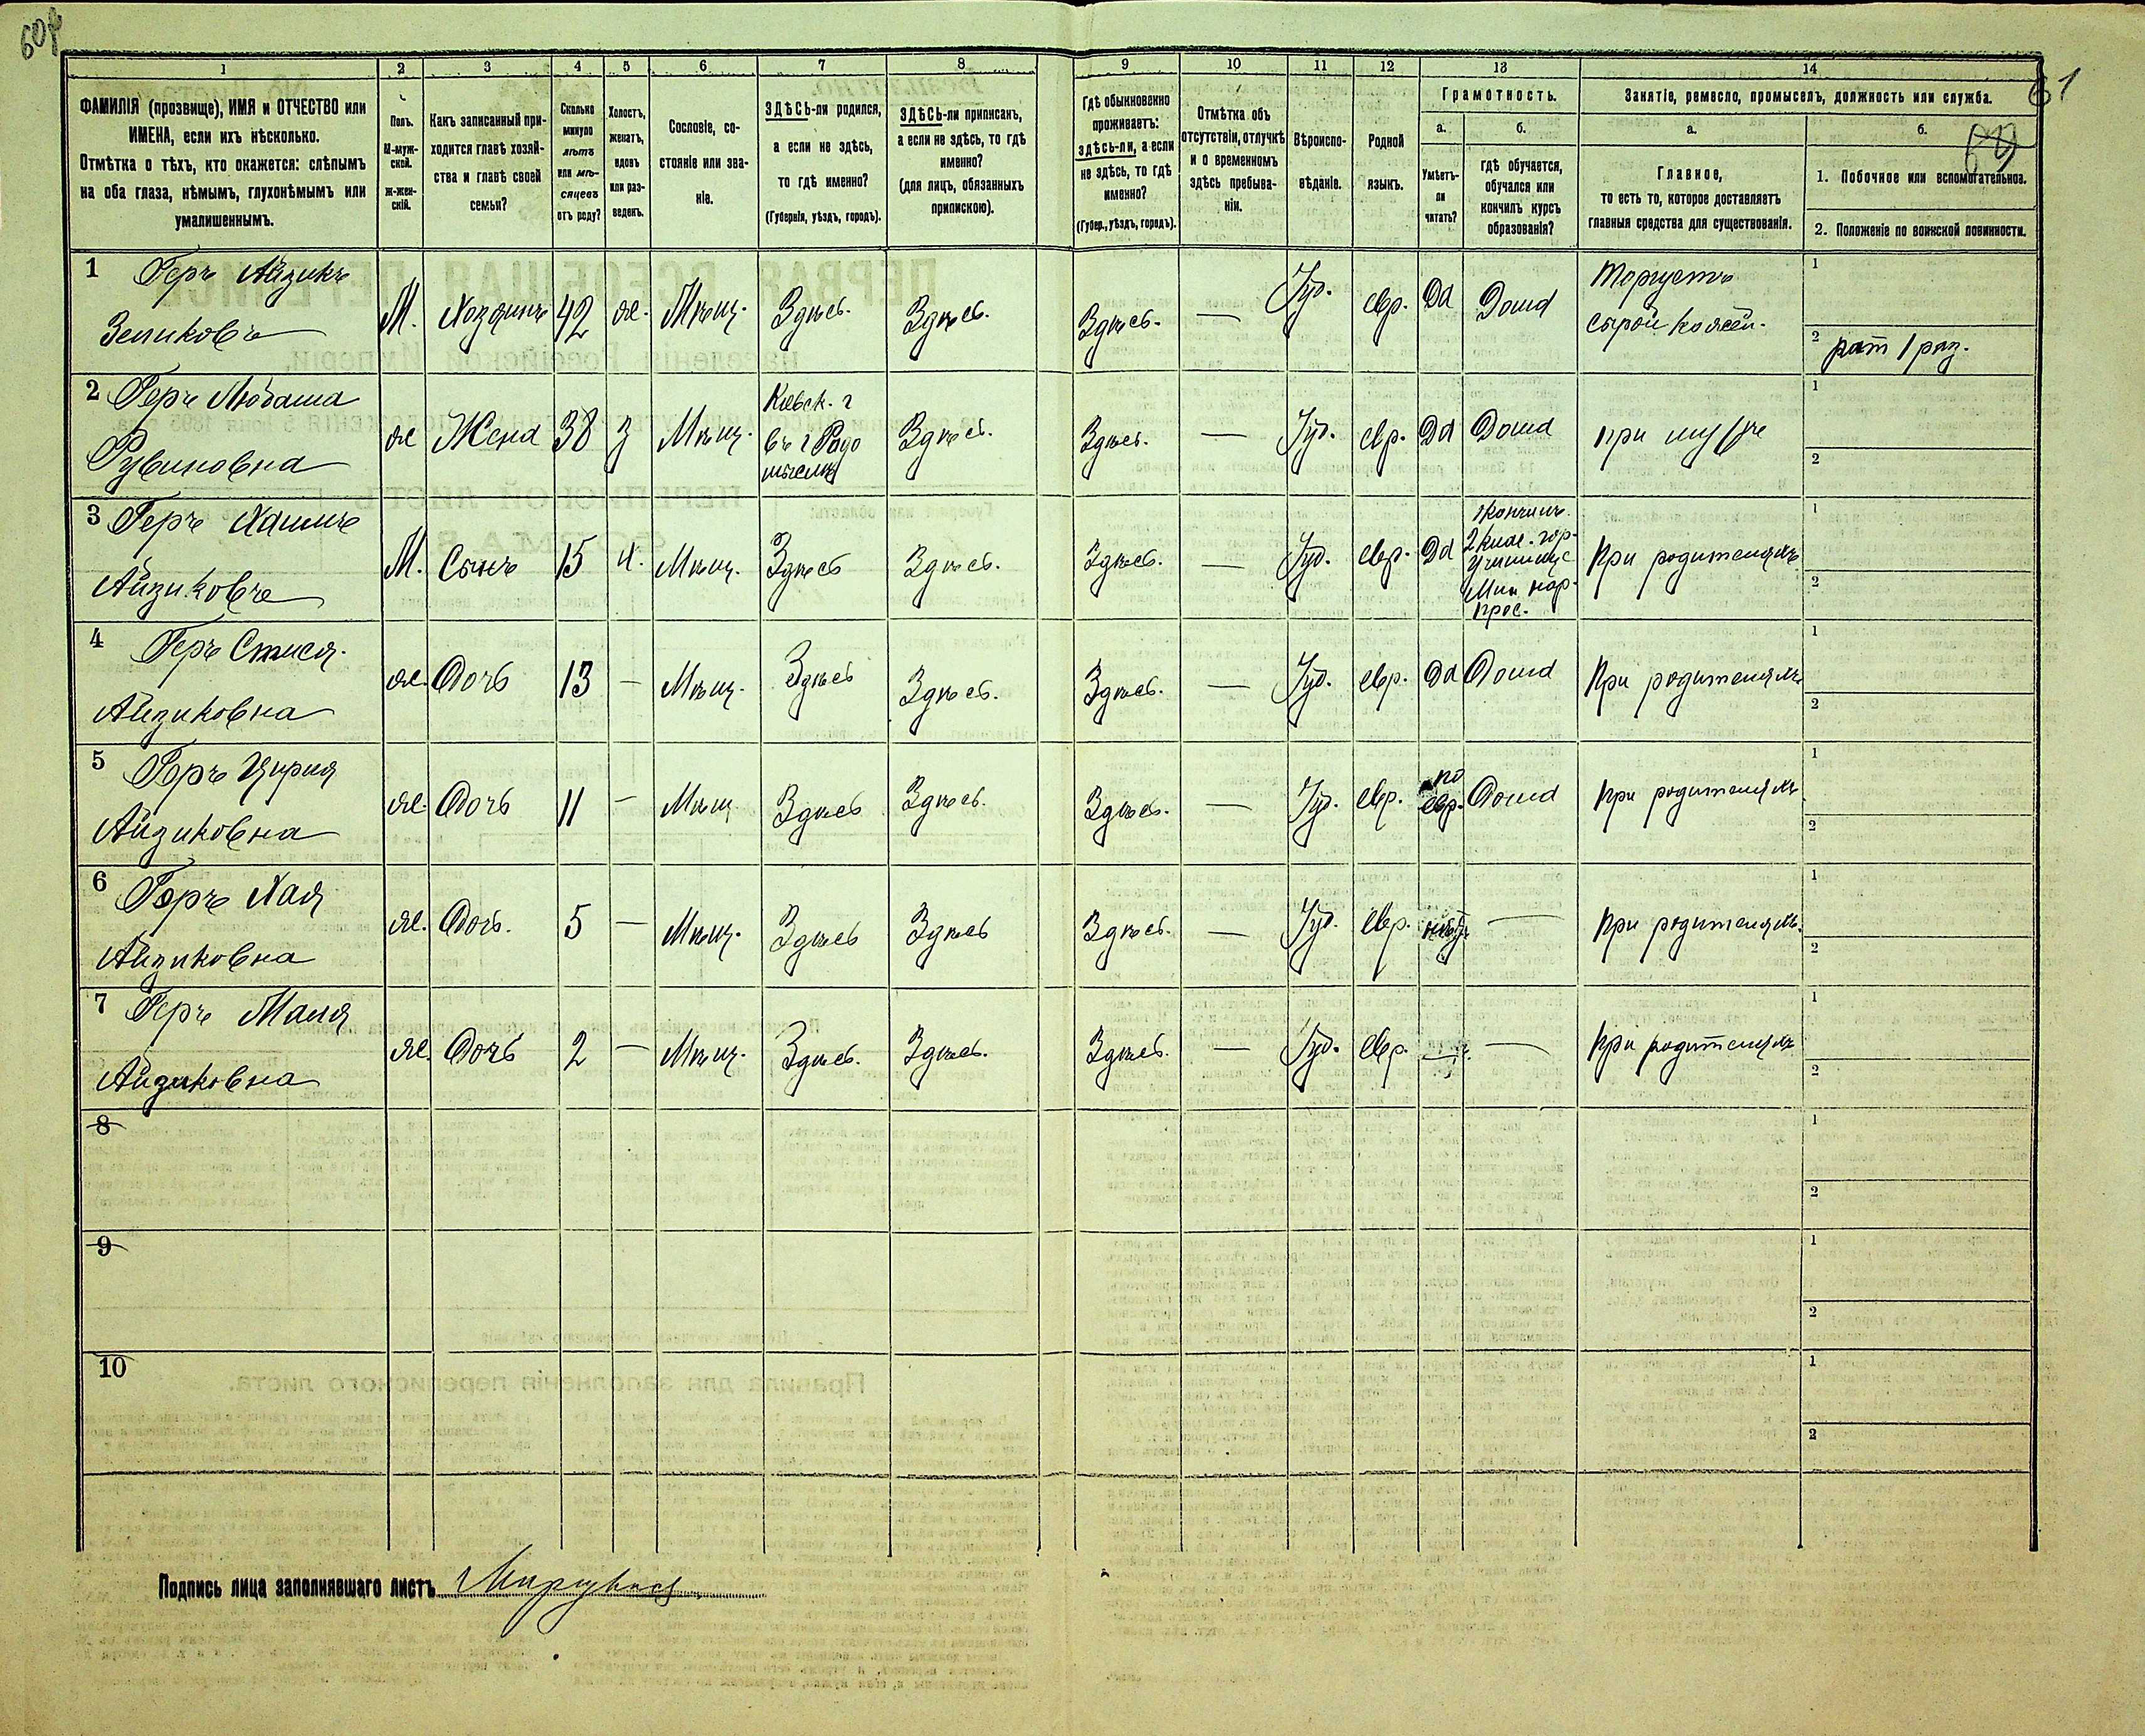 60
61
1
2
3
4
5
6
7
8
9
10
11
12
13
14
ФАМИЛІЯ (прозвище), ИМЯ и ОТЧЕСТВО или
ИМЕНА, если ихъ нѣсколько.
Отмѣтка о тѣхъ, кто окажется: слѣпымъ
на оба глаза, нѣмымъ, глухонѣмымъ или
умалишеннымъ.
Полъ.
М-муж-
ской.
Ж-жен-
скій.
Какъ записанный при-
ходится главѣ хозяй-
ства и главѣ своей
семьи?
Сколько
минуло
лѣтъ
или мѣ-
сяцевъ
отъ роду?
Холостъ,
женатъ,
вдовъ
или раз-
веденъ.
Сословіе, со-
стояніе или зва-
ніе.
ЗДѢСЬ-ли родился,
а если не здѣсь,
то гдѣ именно?
(Губернія, уѣздъ, городъ).
ЗДѢСЬ-ли приписанъ,
а если не здѣсь, то гдѣ
именно?
(для лицъ, обязанныхъ
припискою).
Гдѣ обыкновенно
проживаетъ:
здѣсь-ли, а если
не здѣсь, то гдѣ
именно?
(Губер., уѣздъ, городъ).
Отмѣтка объ
отсутствіи, отлучкѣ
и о временномъ
здѣсь пребыва-
ніи.
Вѣроиспо-
вѣданіе.
Родной
языкъ.
Грамотность.
а.
Умѣетъ-
ли
читать?
б.
гдѣ обучается,
обучался или
кончилъ курсъ
образованія?
Занятіе, ремесло, промыселъ, должность или служба.
а.
Главное,
то есть то, которое доставляетъ
главныя средства для существованія.
б.
1. Побочное или вспомогательное.
2. Положеніе по воинской повинности.
1 Геръ Айзикъ
Зеликовъ
М. Хозяинъ 42 ж. Мѣщ. Здѣсь. Здѣсь. Здѣсь. — Іуд. евр. Да Дома
Торгуетъ
сырой кожей.
1
2 рат 1 раз.
2 Геръ Любаша
Рувиновна
ж Жена 38 з Мѣщ.
Киевск. г
въ г Радо
мыслѣ
Здѣсь. Здѣсь. — Іуд. евр. Да Дома при мужѣ
1
2
3 Геръ Хаимъ
Айзиковъ
М. Сынъ 15 х. Мѣщ. Здѣсь Здѣсь. Здѣсь. — Іуд. евр. Да
кончилъ
2 клас. гор.
училище
Мин нар.
прос.
При родителяхъ
1
2
4 Геръ Стися
Айзиковна
ж. Дочь 13 — Мѣщ. Здѣсь Здѣсь. Здѣсь. — Іуд. евр. Да Дома При родителяхъ
1
2
5 Геръ Цирия
Айзиковна
ж. Дочь 11 — Мѣщ Здѣсь Здѣсь. Здѣсь. — Іуд. евр. по евр. Дома При родителяхъ
1
2
6 Геръ Хая
Айзиковна
ж. Дочь. 5 — Мѣщ. Здѣсь Здѣсь Здѣсь. — Іуд. евр. нѣтъ — При родителяхъ.
1
2
7 Геръ Маня
Айзиковна
ж. Дочь 2 — Мѣщ. Здѣсь. Здѣсь. Здѣсь. — Іуд. евр. — — При родителяхъ
1
2
8
1
2
9
1
2
10
1
2
Подпись лица заполнявшаго листъ